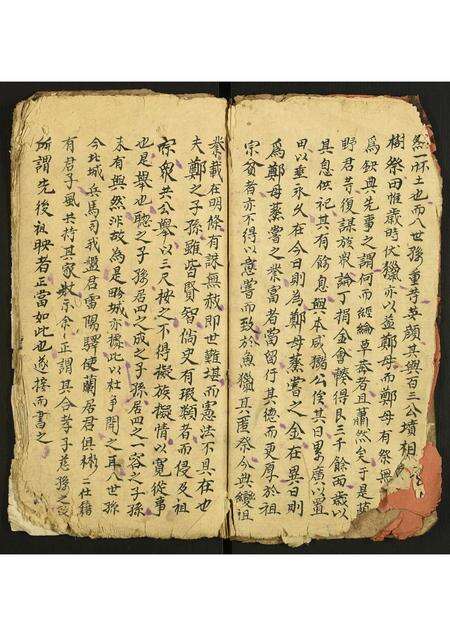 然一抔土也而八世孫重寺英顏其與百三公墳相
樹祭田惟歲時伏臘亦以益鄭母而鄭母有祭無
為欽典先事之謂何而經綸草莽者且蕭然矣于是
野君等復謀放眾論丁捐金會得艮三千餘兩歲以
其息供祀其有餘息與本咸獨公侯其日累廣以置
田以垂永久在今日則為鄭母蒸嘗之金在異日則
為鄭母蒸嘗之舉富者當留行其德而更厚於祖
宗貧者亦不得以意嘗而致於魚獵其匿祭今典
舉載在明條有誅無赦即世難堪而憲法不具在也
夫鄭之子孫雖皆賢智倘更有瑕類者而侵及祖
宗眾共公舉以三尺按之不得礙族礙情以寬從事
也是舉也聰之子孫居四之成之子孫居四之一容之子孫
未有與然非故為是畛域亦稽此以杜爭閗之耳八世孫
今北城兵馬司我盤君雷陽驛使蘭居君俱彬二仕籍
有君子風共持其家教示余正謂其合孝子慈孫之
所謂先後祖映者正當如此也遂捧而書之